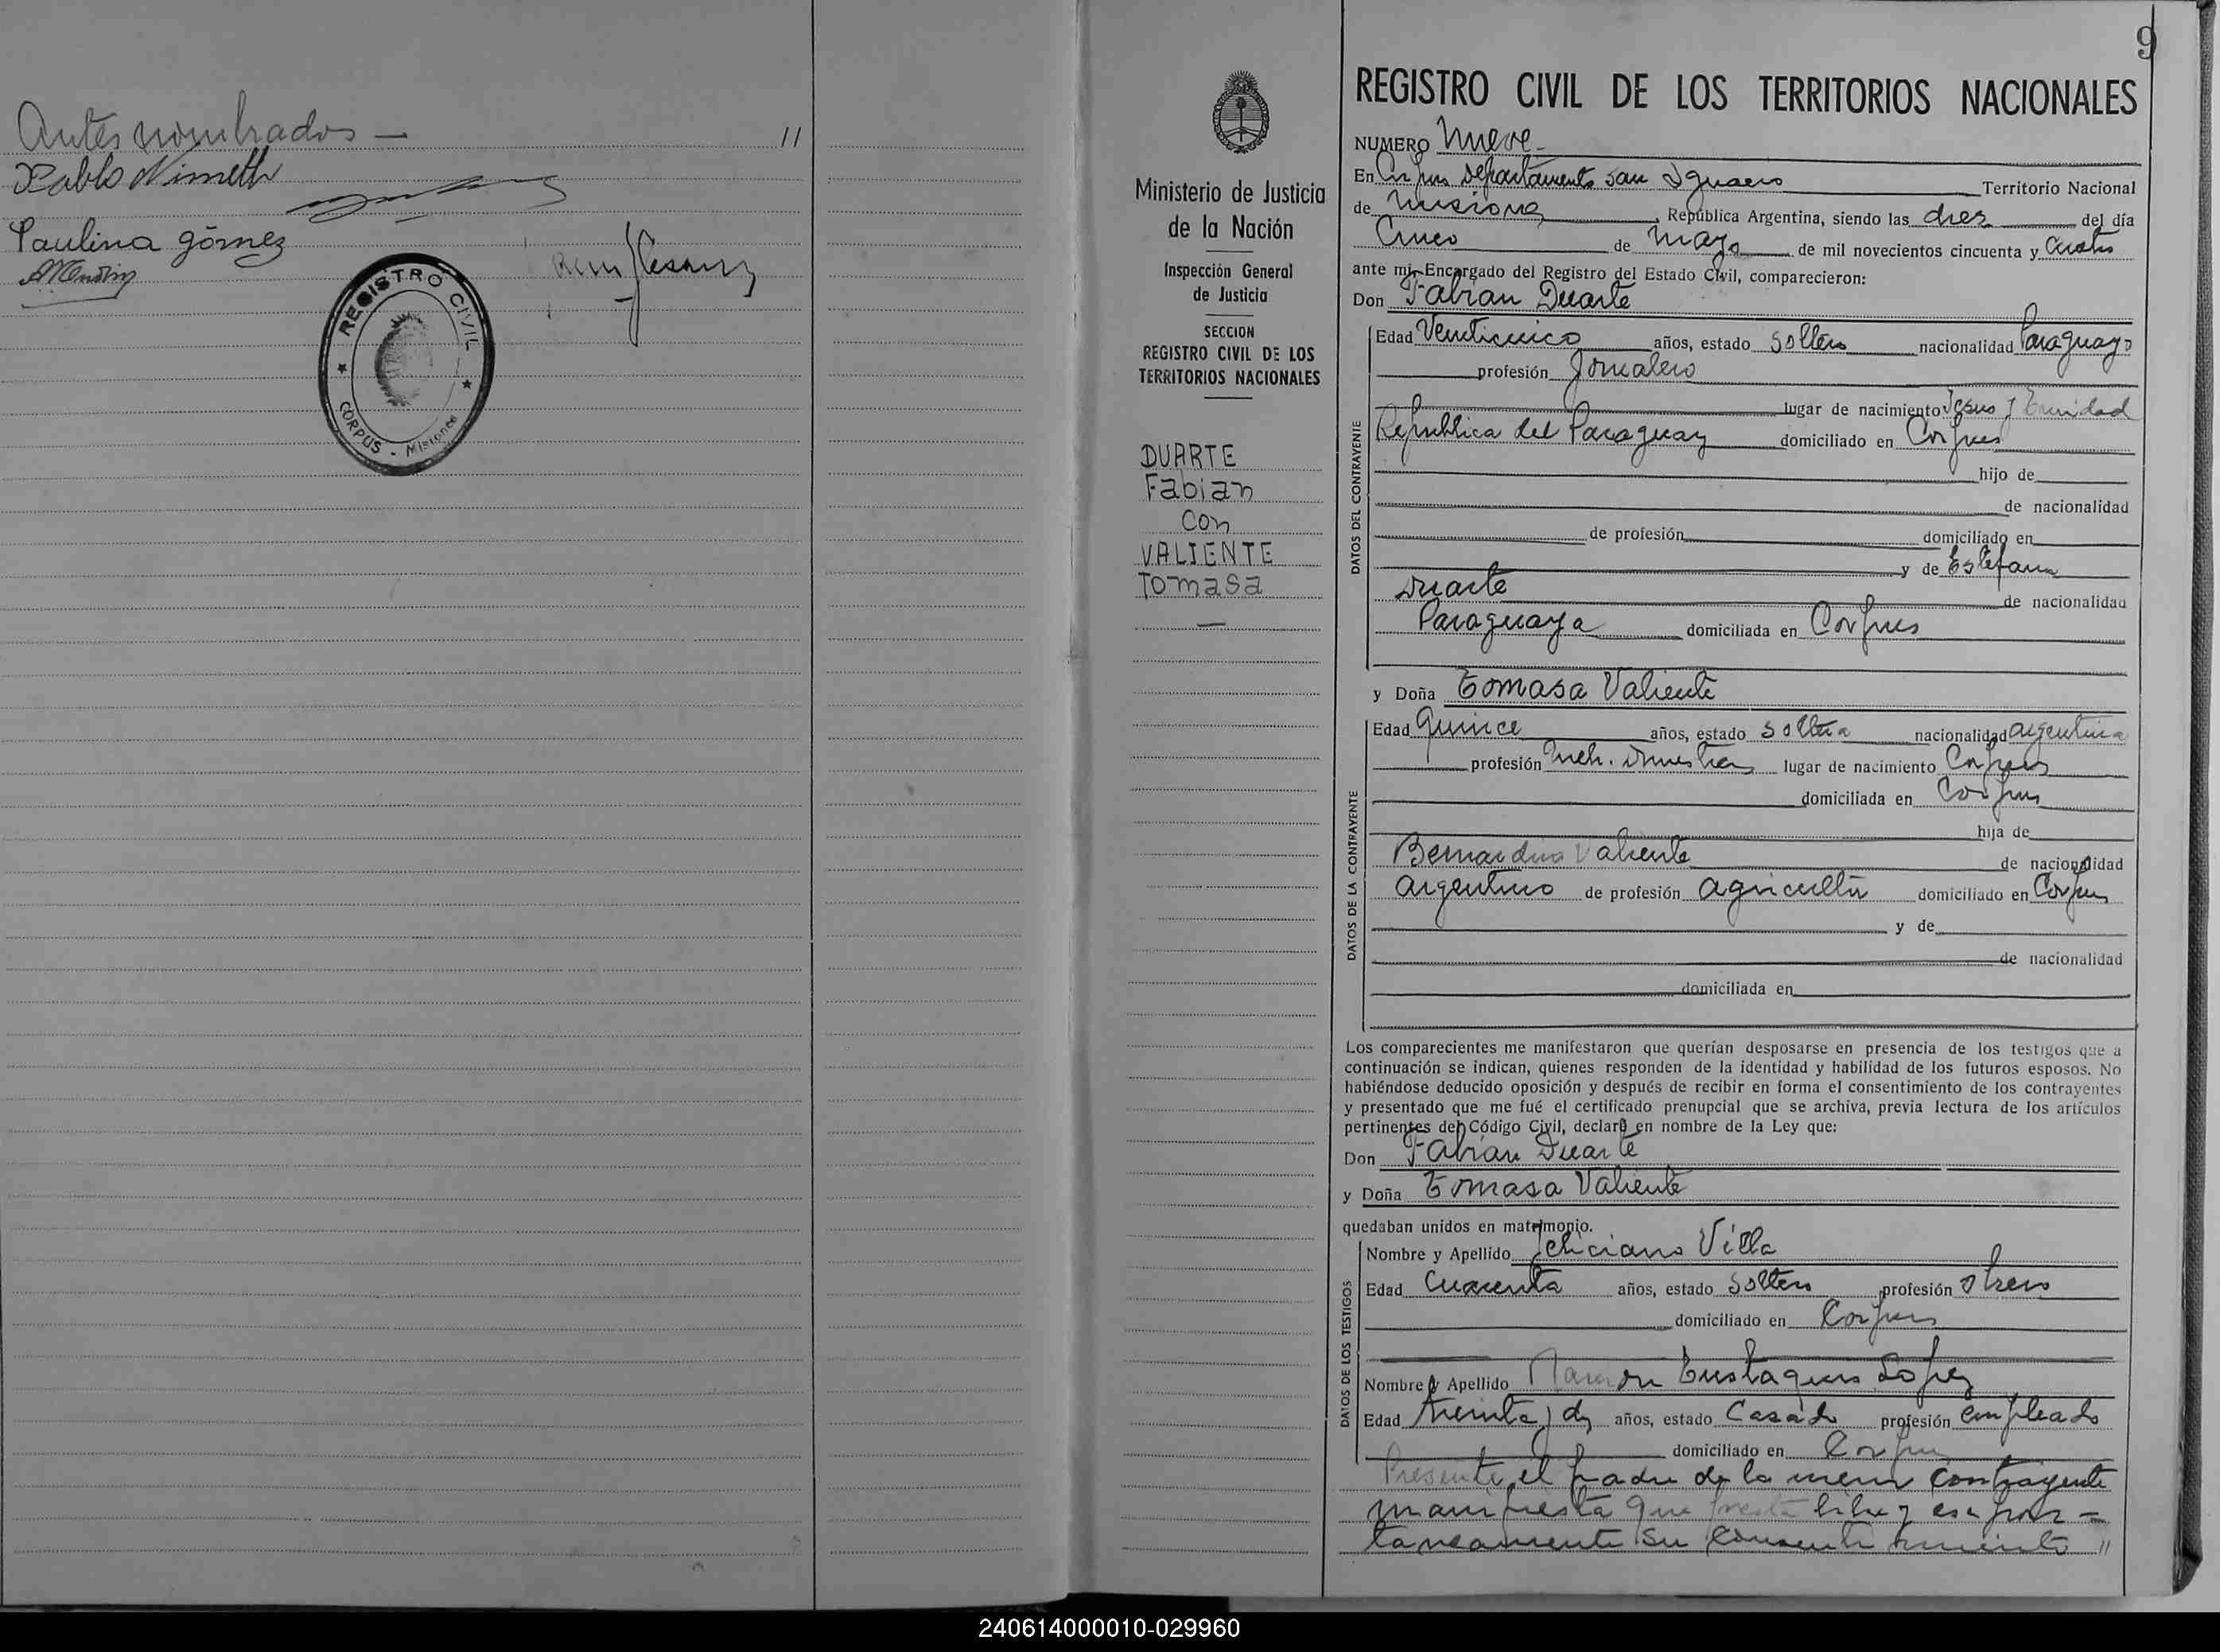 Antes nombrados —
Pablo Nimeth
Paulina gómez
REGISTRO CIVIL
CORPUS - Misiones
9
Ministerio de Justicia
de la Nación
Inspección General
de Justicia
SECCION
REGISTRO CIVIL DE LOS
TERRITORIOS NACIONALES
DUARTE
Fabian
con
VALIENTE
Tomasa
—
REGISTRO CIVIL DE LOS TERRITORIOS NACIONALES
NUMERO Nueve
En Corpus departamento San Ignacio Territorio Nacional
de Misiones, República Argentina, siendo las diez del día
Cinco de Mayo de mil novecientos cincuenta y cuatro
ante mí, Encargado del Registro del Estado Civil, comparecieron:
Don Fabian Duarte
DATOS DEL CONTRAYENTE
Edad Venticinco años, estado Soltero nacionalidad Paraguayo
profesión Jornalero
lugar de nacimiento Jesus y Trinidad
Republica del Paraguay domiciliado en Corpus
hijo de
de nacionalidad
de profesión domiciliado en
y de Estefana
Duarte de nacionalidad
Paraguaya domiciliada en Corpus
y Doña Tomasa Valiente
DATOS DE LA CONTRAYENTE
Edad Quince años, estado Soltera nacionalidad argentina
profesión lugar de nacimiento Corpus
domiciliada en Corpus
hija de
Bernardino Valiente de nacionalidad
argentino de profesión agricultor domiciliado en Corpus
y de
de nacionalidad
domiciliada en
Los comparecientes me manifestaron que querían desposarse en presencia de los testigos que a
continuación se indican, quienes responden de la identidad y habilidad de los futuros esposos. No
habiéndose deducido oposición y después de recibir en forma el consentimiento de los contrayentes
y presentado que me fué el certificado prenupcial que se archiva, previa lectura de los artículos
pertinentes del Código Civil, declaro en nombre de la Ley que:
Don Fabian Duarte
y Doña Tomasa Valiente
quedaban unidos en matrimonio.
DATOS DE LOS TESTIGOS
Nombre y Apellido Feliciano Villa
Edad Cuarenta años, estado Soltero profesión obrero
domiciliado en Corpus
Nombre y Apellido Ramon Eustaquio Lopez
Edad treinta y dos años, estado Casado profesión empleado
domiciliado en Corpus
Presente el padre de la menor contrayente
manifiesta que presta libre y espon-
taneamente su consentimiento "
240614000010-029960